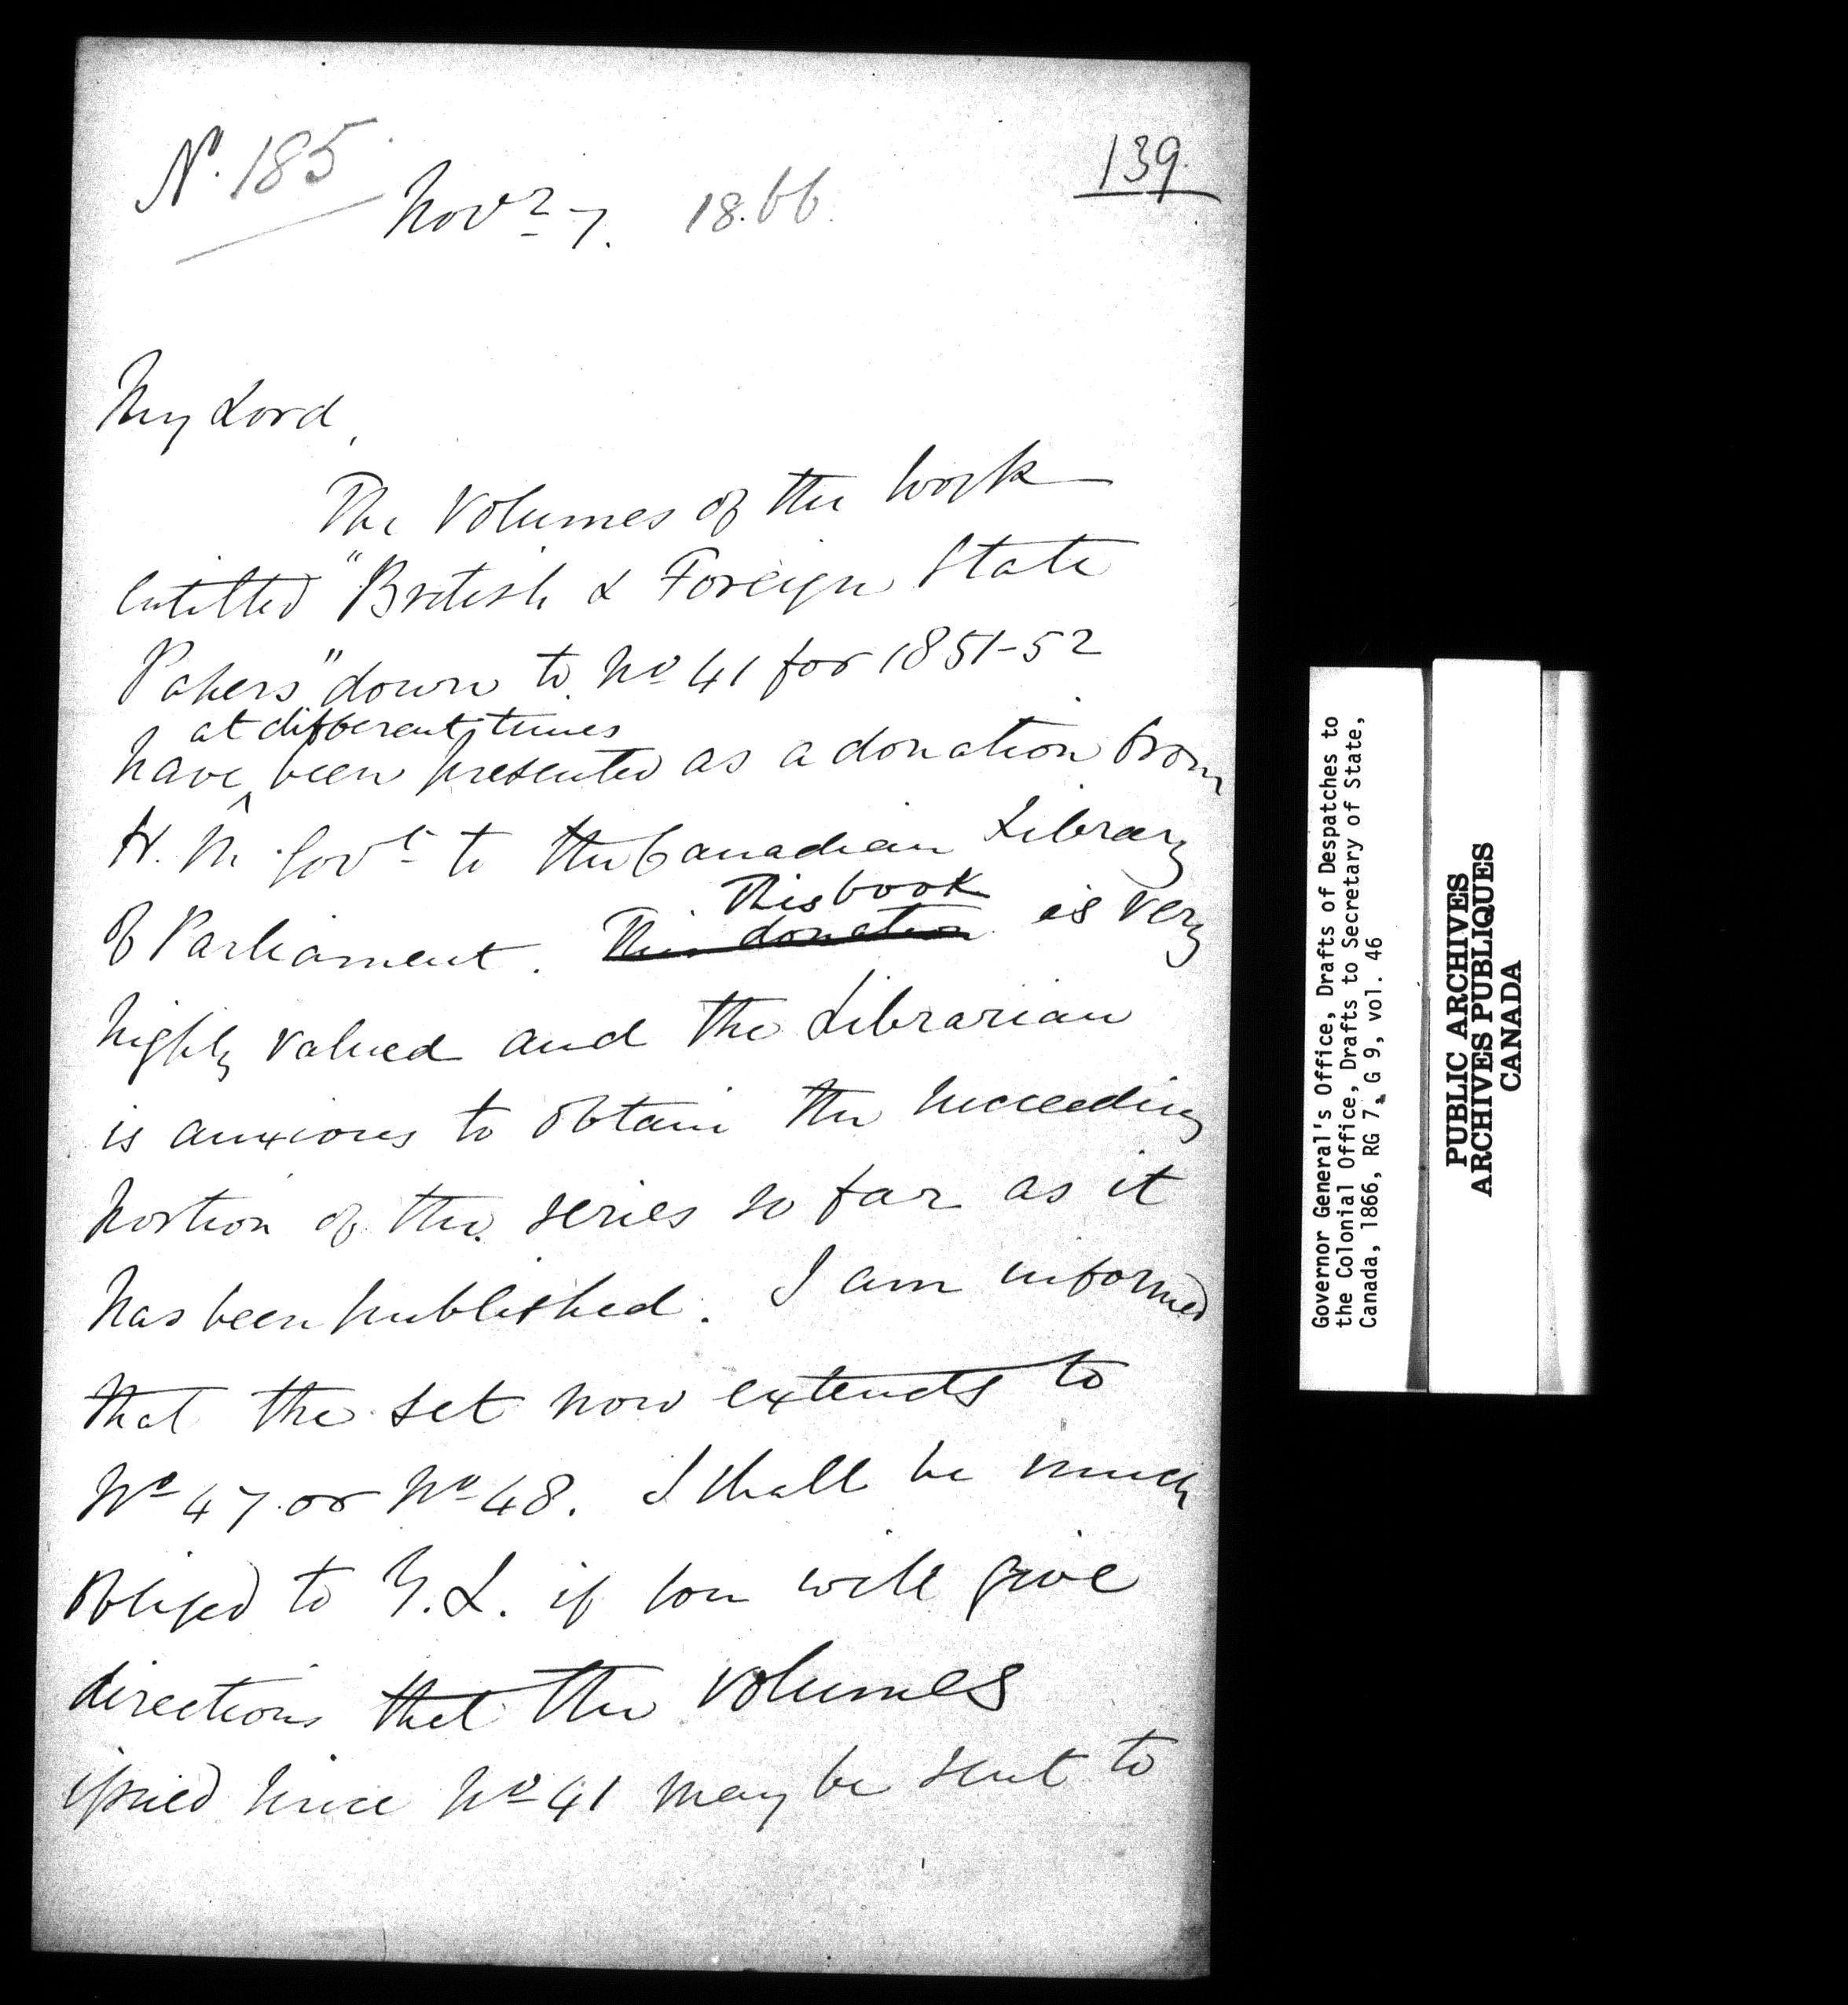 No. 185
139.
Novr 7. 1866.
My Lord,
The Volumes of the work
entitled "British & Foreign State
Papers" down to No 41 for 1851-52
at different times
have ^ been presented as a donation from
H. M. Govt to the Canadian Library
This book
of Parliament. This donation is very
highly valued and the Librarian
is anxious to obtain the succeeding
portion of the series so far as it
has been published. I am informed
that the set now extends to
No 47 or No 48. I shall be much
obliged to Y. L. if you will give
directions that the volumes
issued since No 41 may be sent to
Governor General's Office, Drafts of Despatches to
the Colonial Office, Drafts to Secretary of State,
Canada, 1866, RG 7, G 9, vol. 46
PUBLIC ARCHIVES
ARCHIVES PUBLIQUES
CANADA